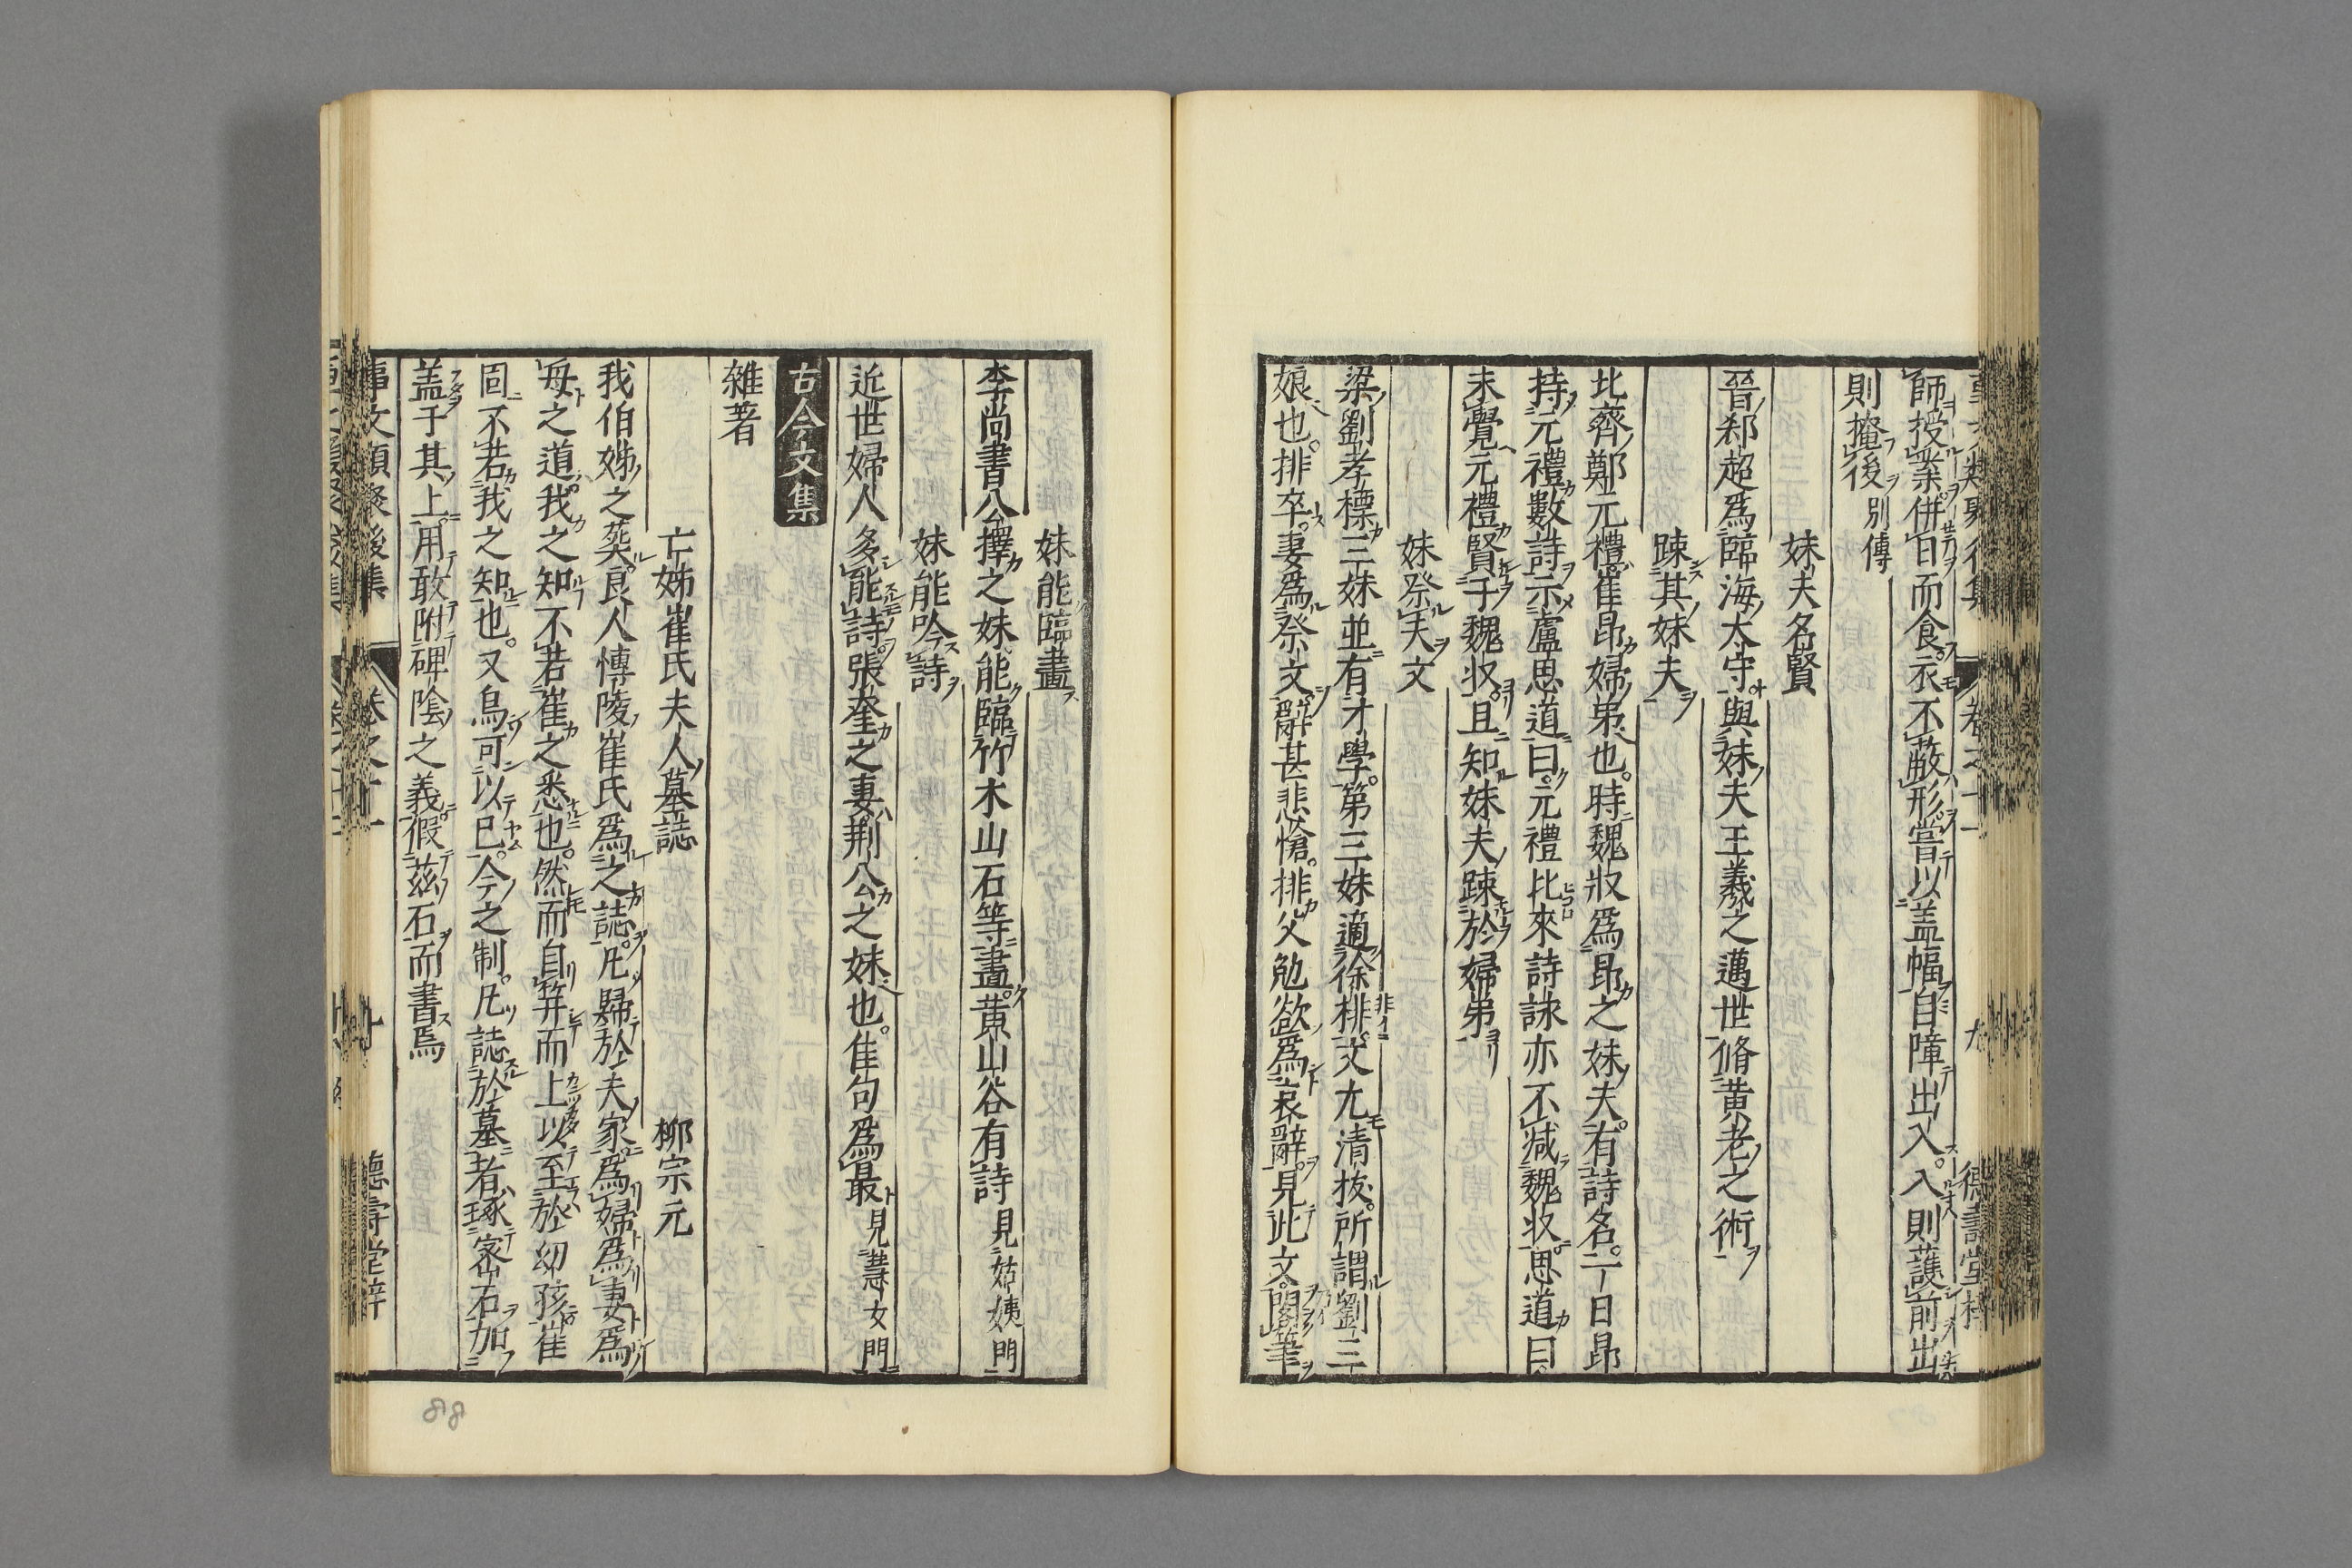 師授業併日而食衣不蔽形嘗以盖幅自障出入入則護前出
則掩後別傳
妹夫名賢
晉郄超爲臨海太守與妹夫王羲之邁世脩黃老之術
踈其妹夫
北齊鄭元禮崔昂婦弟也時魏収爲昂之妹夫有詩名一日昂
持元禮數詩示盧思道曰元禮比來詩詠亦不減魏収思道曰
未覺元禮賢于魏収且知妹夫踈於婦弟
妹祭夫文
梁劉孝標三妹並有才學第三妹適徐排文尤清拔所謂劉三
娘也排卒妻爲祭文辭甚悲愴排父勉欲爲哀辭見此文閣筆
妹能臨畫
李尚書公擇之妹能臨竹木山石等畫黃山谷有詩見姑姨門
妹能吟詩
近世婦人多能詩張奎之妻荆公之妹也佳句爲最見慧女門
古今文集
雜著
亡姊崔氏夫人墓誌 柳宗元
我伯姊之葬良人博陵崔氏爲之誌凡歸於夫家爲婦爲妻爲
母之道我之知不若崔之悉也然而自筓而上以至於幼孩崔
固不若我之知也又烏可以已今之制凡誌於墓者琢密石加
盖于其上用敢附碑陰之義假茲石而書焉
事文類聚後集 卷之十一 德壽堂梓